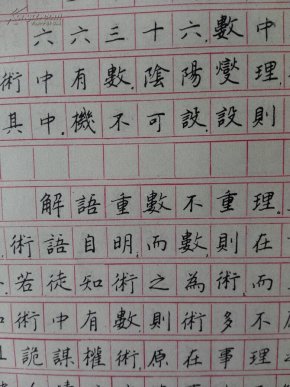 六六三十六.數中
術中有數.陰陽燮理.
其中.機不可設.設則
解語重數不重理.
.術語自明.而數則在
.若徒知術之為術.而
術中有數則術多不
詭謀權術.原在事理